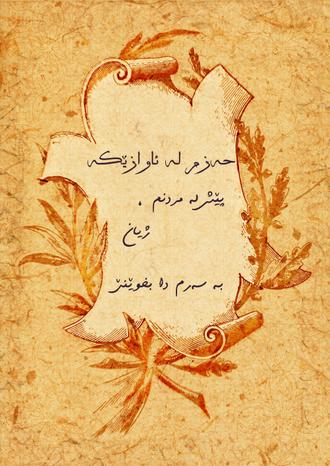 حەزم لە ئاوازێکە
پێش لە مردنم ،
ژیان
بە سەرم دا بخوێنێ